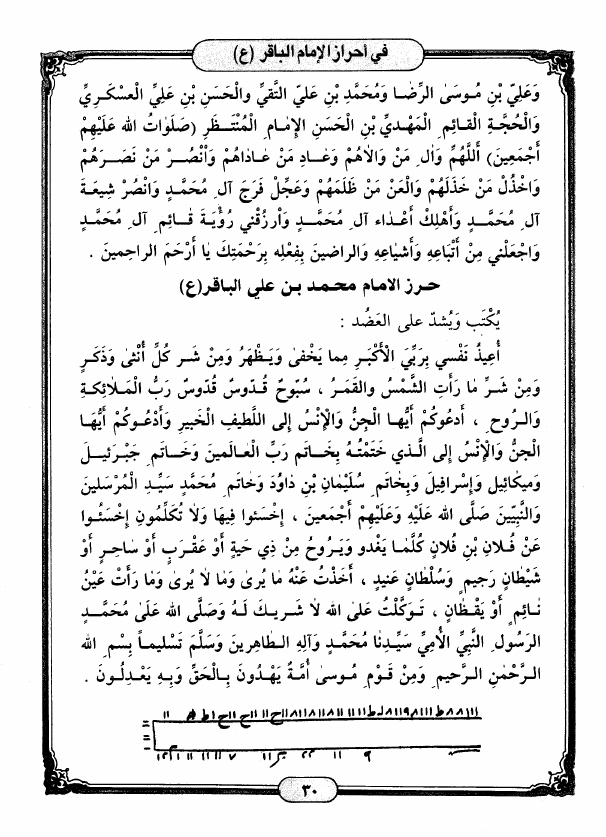 في أحراز الإمام الباقر (ع)
وَعَلِيّ بْنِ مُوسَى الرِّضَا وَمُحَمَّدِ بْنِ عَلِيّ التَّقِيِّ والْحَسَنِ بْنِ عَلِيِّ الْعَسْكَرِيِّ
وَالْحُجَّةِ الْقَائِمِ الْمَهْدِيِّ بْنِ الْحَسَنِ الإِمَامِ الْمُنْتَظَرِ (صَلَوَاتُ الله عَلَيْهِمْ
أَجْمَعِينَ) أَللَّهُمَّ وَالِ مَنْ وَالاهُمْ وَعَادِ مَنْ عَادَاهُمْ وَانْصُرْ مَنْ نَصَرَهُمْ
وَاخْذُلْ مَنْ خَذَلَهُمْ وَالْعَنْ مَنْ ظَلَمَهُمْ وَعَجِّلْ فَرَجَ آلِ مُحَمَّدٍ وَانْصُرْ شِيعَةَ
آلِ مُحَمَّدٍ وَأَهْلِكْ أَعْدَاء آلِ مُحَمَّدٍ وَارزُقْنِي رُؤْيَةَ قَائِمِ آلِ مُحَمَّدٍ
وَاجْعَلْنِي مِنْ أَتْبَاعِهِ وَأَشْيَاعِهِ وَالراضينَ بِفِعْلِهِ بِرَحْمَتِكَ يا أَرْحَمَ الراحِمينَ .
حرز الامام محمد بن علي الباقر(ع)
يُكْتَب وَيُشدّ على العَضُد :
أُعيذُ نَفْسي بِرَبِّيَ الْأَكْبَرِ مِما يَخْفىٰ وَيَظْهَرُ وَمِنْ شر كُلِّ أُنْثى وَذَكَرٍ
وَمِنْ شَرِّ مَا رَأَتِ الشَّمْسُ والقَمَرُ ، سُبّوحٌ قُدّوسٌ قُدّوسٌ رَبُّ الْمَلائِكةِ
وَالرُوحِ ، أَدعُوكُمْ أَيُّهَا الْجِنُّ وَالْإِنْسُ إِلى اللَّطيفِ الْخَبيرِ وَأَدْعُوكُمْ أَيُّهَا
الْجِنُّ وَالْإِنْسُ إِلى الَّذي خَتَمْتُهُ بِخَاتَمِ رَبِّ الْعَالَمينَ وَخَاتَمِ جَبْرَئيلَ
وَمِيكَائِيلَ وَإِسْرافِيلَ وَبِخَاتَمِ سُلَيْمَانَ بْنِ دَاوُدَ وَخَاتَمِ مُحَمَّدٍ سَيِّدِ الْمُرْسَلينَ
وَالنَّبِيِّينَ صَلَّى الله عَلَيْهِ وَعَلَيْهِمْ أَجْمَعينَ ، إِخْسَئوا فِيهَا وَلاَ تُكَلِّمُونِ إِخْسَئُوا
عَنْ فُلاَنِ بْنِ فُلاَنٍ كُلَّمَا يَغْدو وَيَرُوحُ مِنْ ذِي حَيةٍ أَوْ عَقْرَبٍ أَوْ سَاحِرٍ أَوْ
شَيْطَانٍ رَجيمٍ وَسُلْطَانٍ عَنيدٍ ، أَخَذْتُ عَنْهُ مَا يُرىٰ وَمَا لاَ يُرىٰ وَمَا رَأَتْ عَيْنُ
نَائِمٍ أَوْ يَقْظَانٍ ، تَوَكَّلْتُ عَلىٰ الله لاٰ شَريكَ لَهُ وَصَلَّى الله عَلىٰ مُحَمَّدٍ
الرَسُولِ النَّبِيِّ الْأُمِيِّ سَيِّدِنَا مُحَمَّدٍ وَآلِهِ الطَاهِرينَ وَسَلَّمَ تَسْليماً بِسْمِ الله
الرَّحْمٰنِ الرَّحيمِ وَمِنْ قَوْمِ مُوسىٰ أُمَّةٌ يَهْدُونَ بِالْحَقِّ وَبِهِ يَعْدِلُونَ .
٣٠